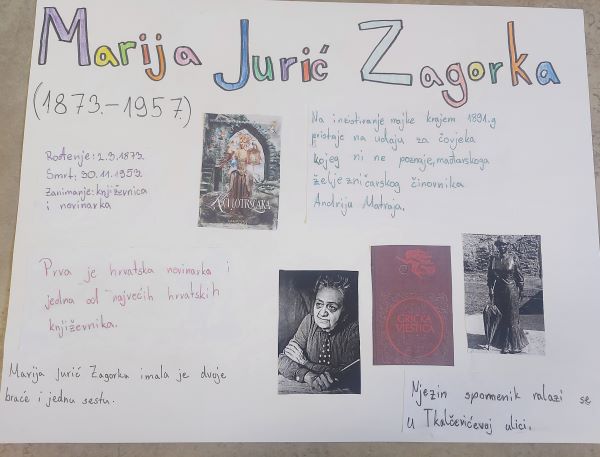 Marija Jurić Zagorka
(1873.-1957.)
Rođenje: 2.3.1873.
Smrt: 30.11.1957.
Zanimanje: književnica
i novinarka
KĆI LOTRŠČAKA
Na inzistiranje majke krajem 1891.g
pristaje na udaju za čovjeka
kojeg ni ne poznaje, mađarskoga
željezničarskog činovnika
Andriju Matraja.
Prva je hrvatska novinarka i
jedna od najvećih hrvatskih
književnika.
GRIČKA
VJEŠTICA
Marija Jurić Zagorka imala je dvoje
braće i jednu sestu.
Njezin spomenik nalazi se
u Tkalčićevoj ulici.